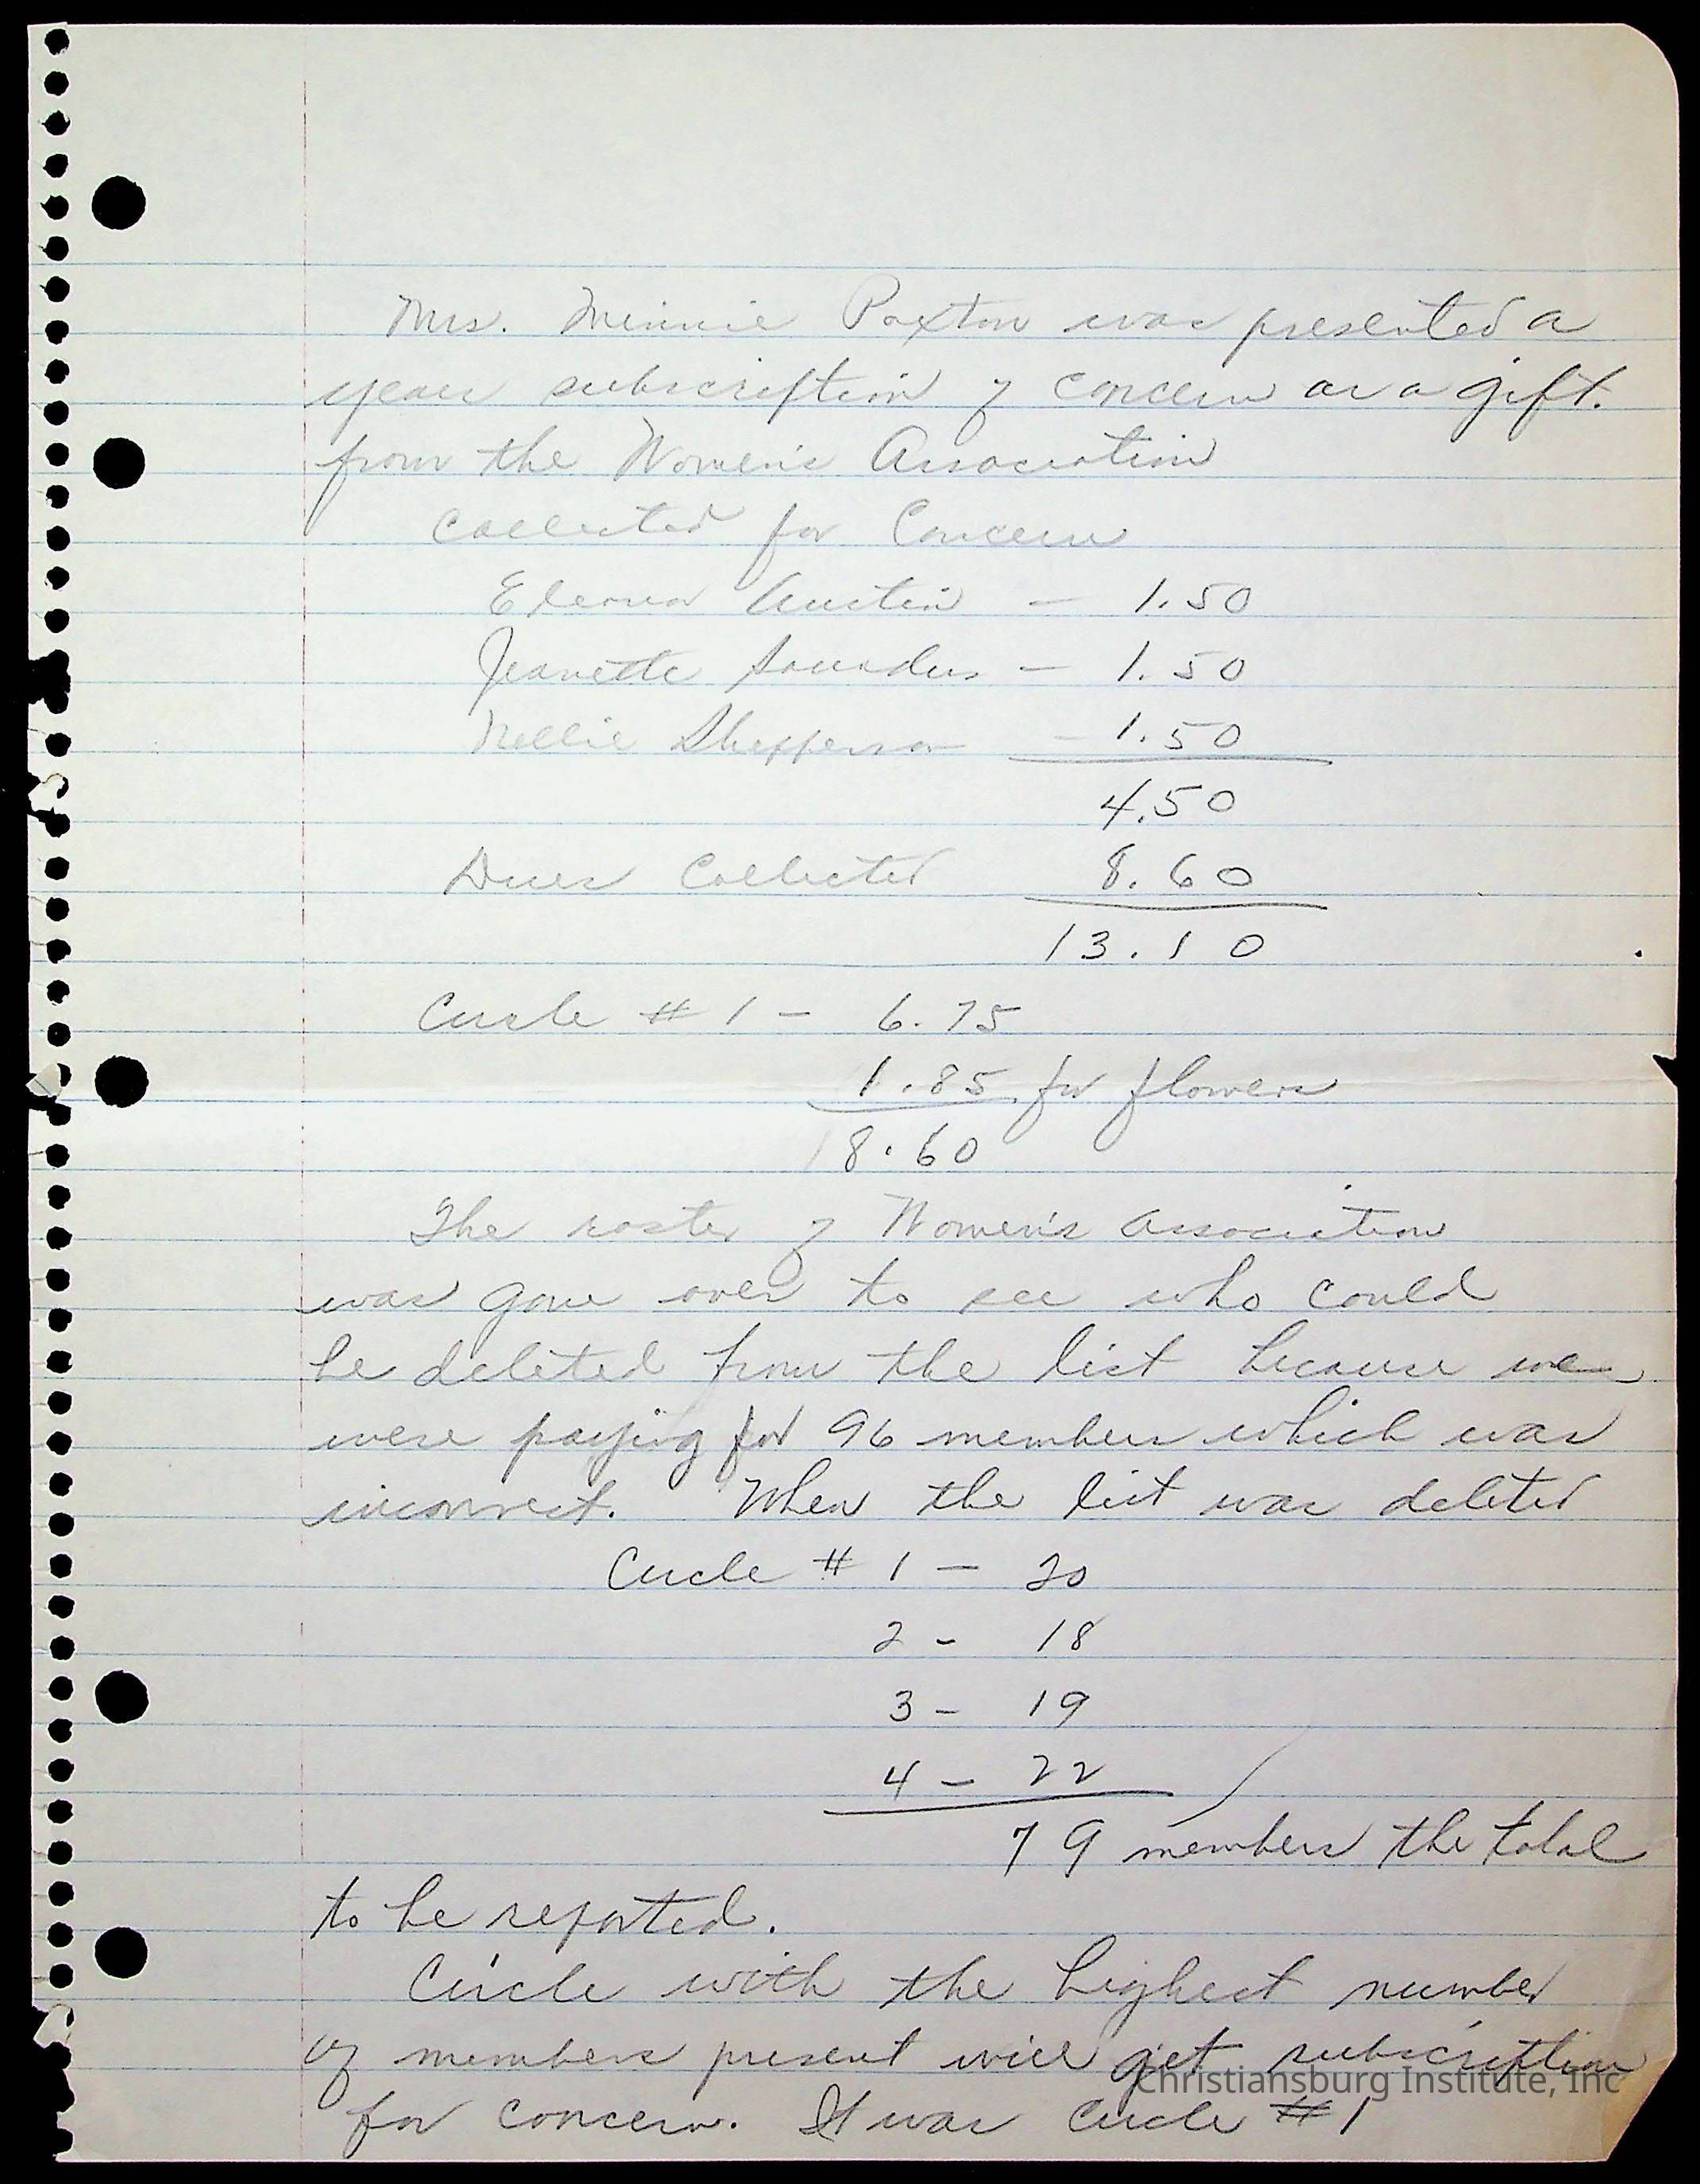 Mrs. Minnie Paxton was presented a
year subscription of Concern as a gift.
from the Women's Association
Collected for Concern
Eleanor Austin – 1.50
Jeanette Saunders – 1.50
Nellie Shepperson – 1.50
4.50
Dues Collected 8.60
13.10
Circle # 1 – 6.75
1.85 for flowers
8.60
The roster of Women's Association
was gone over to see who could
be deleted from the list because we
were paying for 96 members which was
incorrect. When the list was deleted
Circle # 1 – 20
2 – 18
3 – 19
4 – 22
79 members the total
to be reported.
Circle with the highest number
of members present will get subscription
for concern. It was Circle #1
Christiansburg Institute, Inc